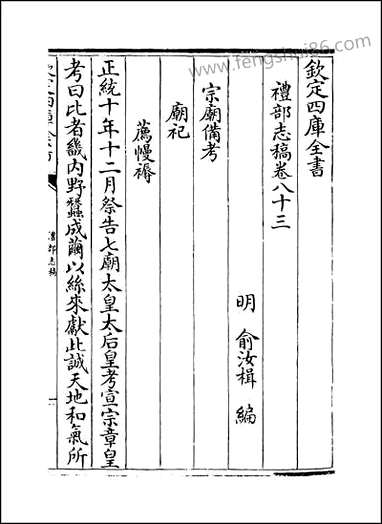 欽定四庫全書
禮部志稿卷八十三
明 俞汝楫 編
宗廟備考
廟祀
薦幔褥
正統十年十二月祭告七廟太皇太后皇考宣宗章皇
考曰比者畿内野蠶成繭以絲來獻此誠天地和氣所
禮部志稿
一
www.fengshui86.com